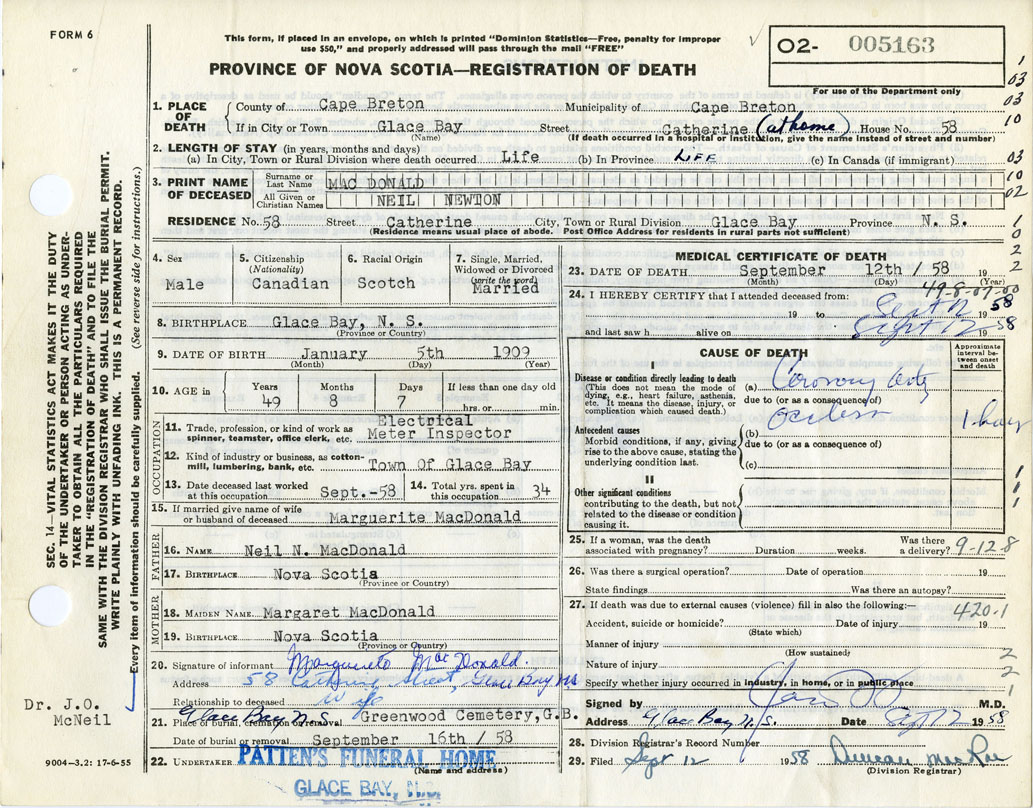 FORM 6
This form, if placed in an envelope, on which is printed "Dominion Statistics—Free, penalty for improper
use $50," and properly addressed will pass through the mail "FREE"
02- 005163
For use of the Department only
PROVINCE OF NOVA SCOTIA—REGISTRATION OF DEATH
1. PLACE OF DEATH
County of Cape Breton Municipality of Cape Breton
If in City or Town Glace Bay Street Catherine (at home) House No. 58
(Name) (If death occurred in a hospital or institution, give the name instead of street and number)
2. LENGTH OF STAY (in years, months and days)
(a) In City, Town or Rural Division where death occurred Life (b) In Province LIFE (c) In Canada (if immigrant)
3. PRINT NAME OF DECEASED
Surname or Last Name MAC DONALD
All Given or Christian Names NEIL NEWTON
RESIDENCE No. 58 Street Catherine City, Town or Rural Division Glace Bay Province N. S.
(Residence means usual place of abode. Post Office Address for residents in rural parts not sufficient)
4. Sex
Male
5. Citizenship
(Nationality)
Canadian
6. Racial Origin
Scotch
7. Single, Married,
Widowed or Divorced
(write the word)
Married
8. BIRTHPLACE Glace Bay, N. S.
(Province or Country)
9. DATE OF BIRTH January 5th 1909
(Month) (Day) (Year)
10. AGE in
Years Months Days If less than one day old
49 8 7 hrs. or min.
OCCUPATION
11. Trade, profession, or kind of work as
spinner, teamster, office clerk, etc.
Electrical
Meter Inspector
12. Kind of industry or business, as cotton-
mill, lumbering, bank, etc. Town Of Glace Bay
13. Date deceased last worked
at this occupation Sept.-58
14. Total yrs. spent in
this occupation 34
15. If married give name of wife
or husband of deceased Marguerite MacDonald
FATHER
16. NAME Neil N. MacDonald
17. BIRTHPLACE Nova Scotia
(Province or Country)
MOTHER
18. MAIDEN NAME Margaret MacDonald
19. BIRTHPLACE Nova Scotia
(Province or Country)
20. Signature of informant Marguerite MacDonald.
Address 58 Catherine Street, Glace Bay NS
Relationship to deceased wife
Glace Bay N.S.
21. Place of burial, cremation or removal Greenwood Cemetery, G.B.
Date of burial or removal September 16th / 58
22. UNDERTAKER PATTEN'S FUNERAL HOME
(Name and address)
GLACE BAY, N.S.
MEDICAL CERTIFICATE OF DEATH
23. DATE OF DEATH September 12th / 58 19
(Month) (Day) (Year)
49-8-07-00
24. I HEREBY CERTIFY that I attended deceased from:
19 to Sept 12 58
and last saw h alive on Sept 12 1958
CAUSE OF DEATH
Approximate interval between onset and death
I
Disease or condition directly leading to death
(This does not mean the mode of
dying, e.g., heart failure, asthenia,
etc. It means the disease, injury, or
complication which caused death.)
(a) Coronary artery
due to (or as a consequence of)
occlusion
1 hour
Antecedent causes
Morbid conditions, if any, giving
rise to the above cause, stating the
underlying condition last.
(b)
due to (or as a consequence of)
(c)
II
Other significant conditions
contributing to the death, but not
related to the disease or condition
causing it.
25. If a woman, was the death
associated with pregnancy? Duration weeks. Was there
a delivery? 9-12-8
26. Was there a surgical operation? Date of operation 19
State findings Was there an autopsy?
27. If death was due to external causes (violence) fill in also the following:—
420.1
Accident, suicide or homicide? Date of injury 19
(State which)
Manner of injury
(How sustained)
Nature of injury
Specify whether injury occurred in industry, in home, or in public place
Signed by M.D.
Address Glace Bay, N.S. Date Sept 12 1958
28. Division Registrar's Record Number
29. Filed Sept 12 1958 Duncan MacRae
(Division Registrar)
1
03
03
10
03
10
02
1
0
2
2
1
1
1
2
2
1
SEC. 14—VITAL STATISTICS ACT MAKES IT THE DUTY
OF THE UNDERTAKER OR PERSON ACTING AS UNDER-
TAKER TO OBTAIN ALL THE PARTICULARS REQUIRED
IN THE "REGISTRATION OF DEATH" AND TO FILE THE
SAME WITH THE DIVISION REGISTRAR WHO SHALL ISSUE THE BURIAL PERMIT.
WRITE PLAINLY WITH UNFADING INK. THIS IS A PERMANENT RECORD.
Every item of information should be carefully supplied. (See reverse side for instructions.)
Dr. J.O.
McNeil
9004—3.2: 17-6-55